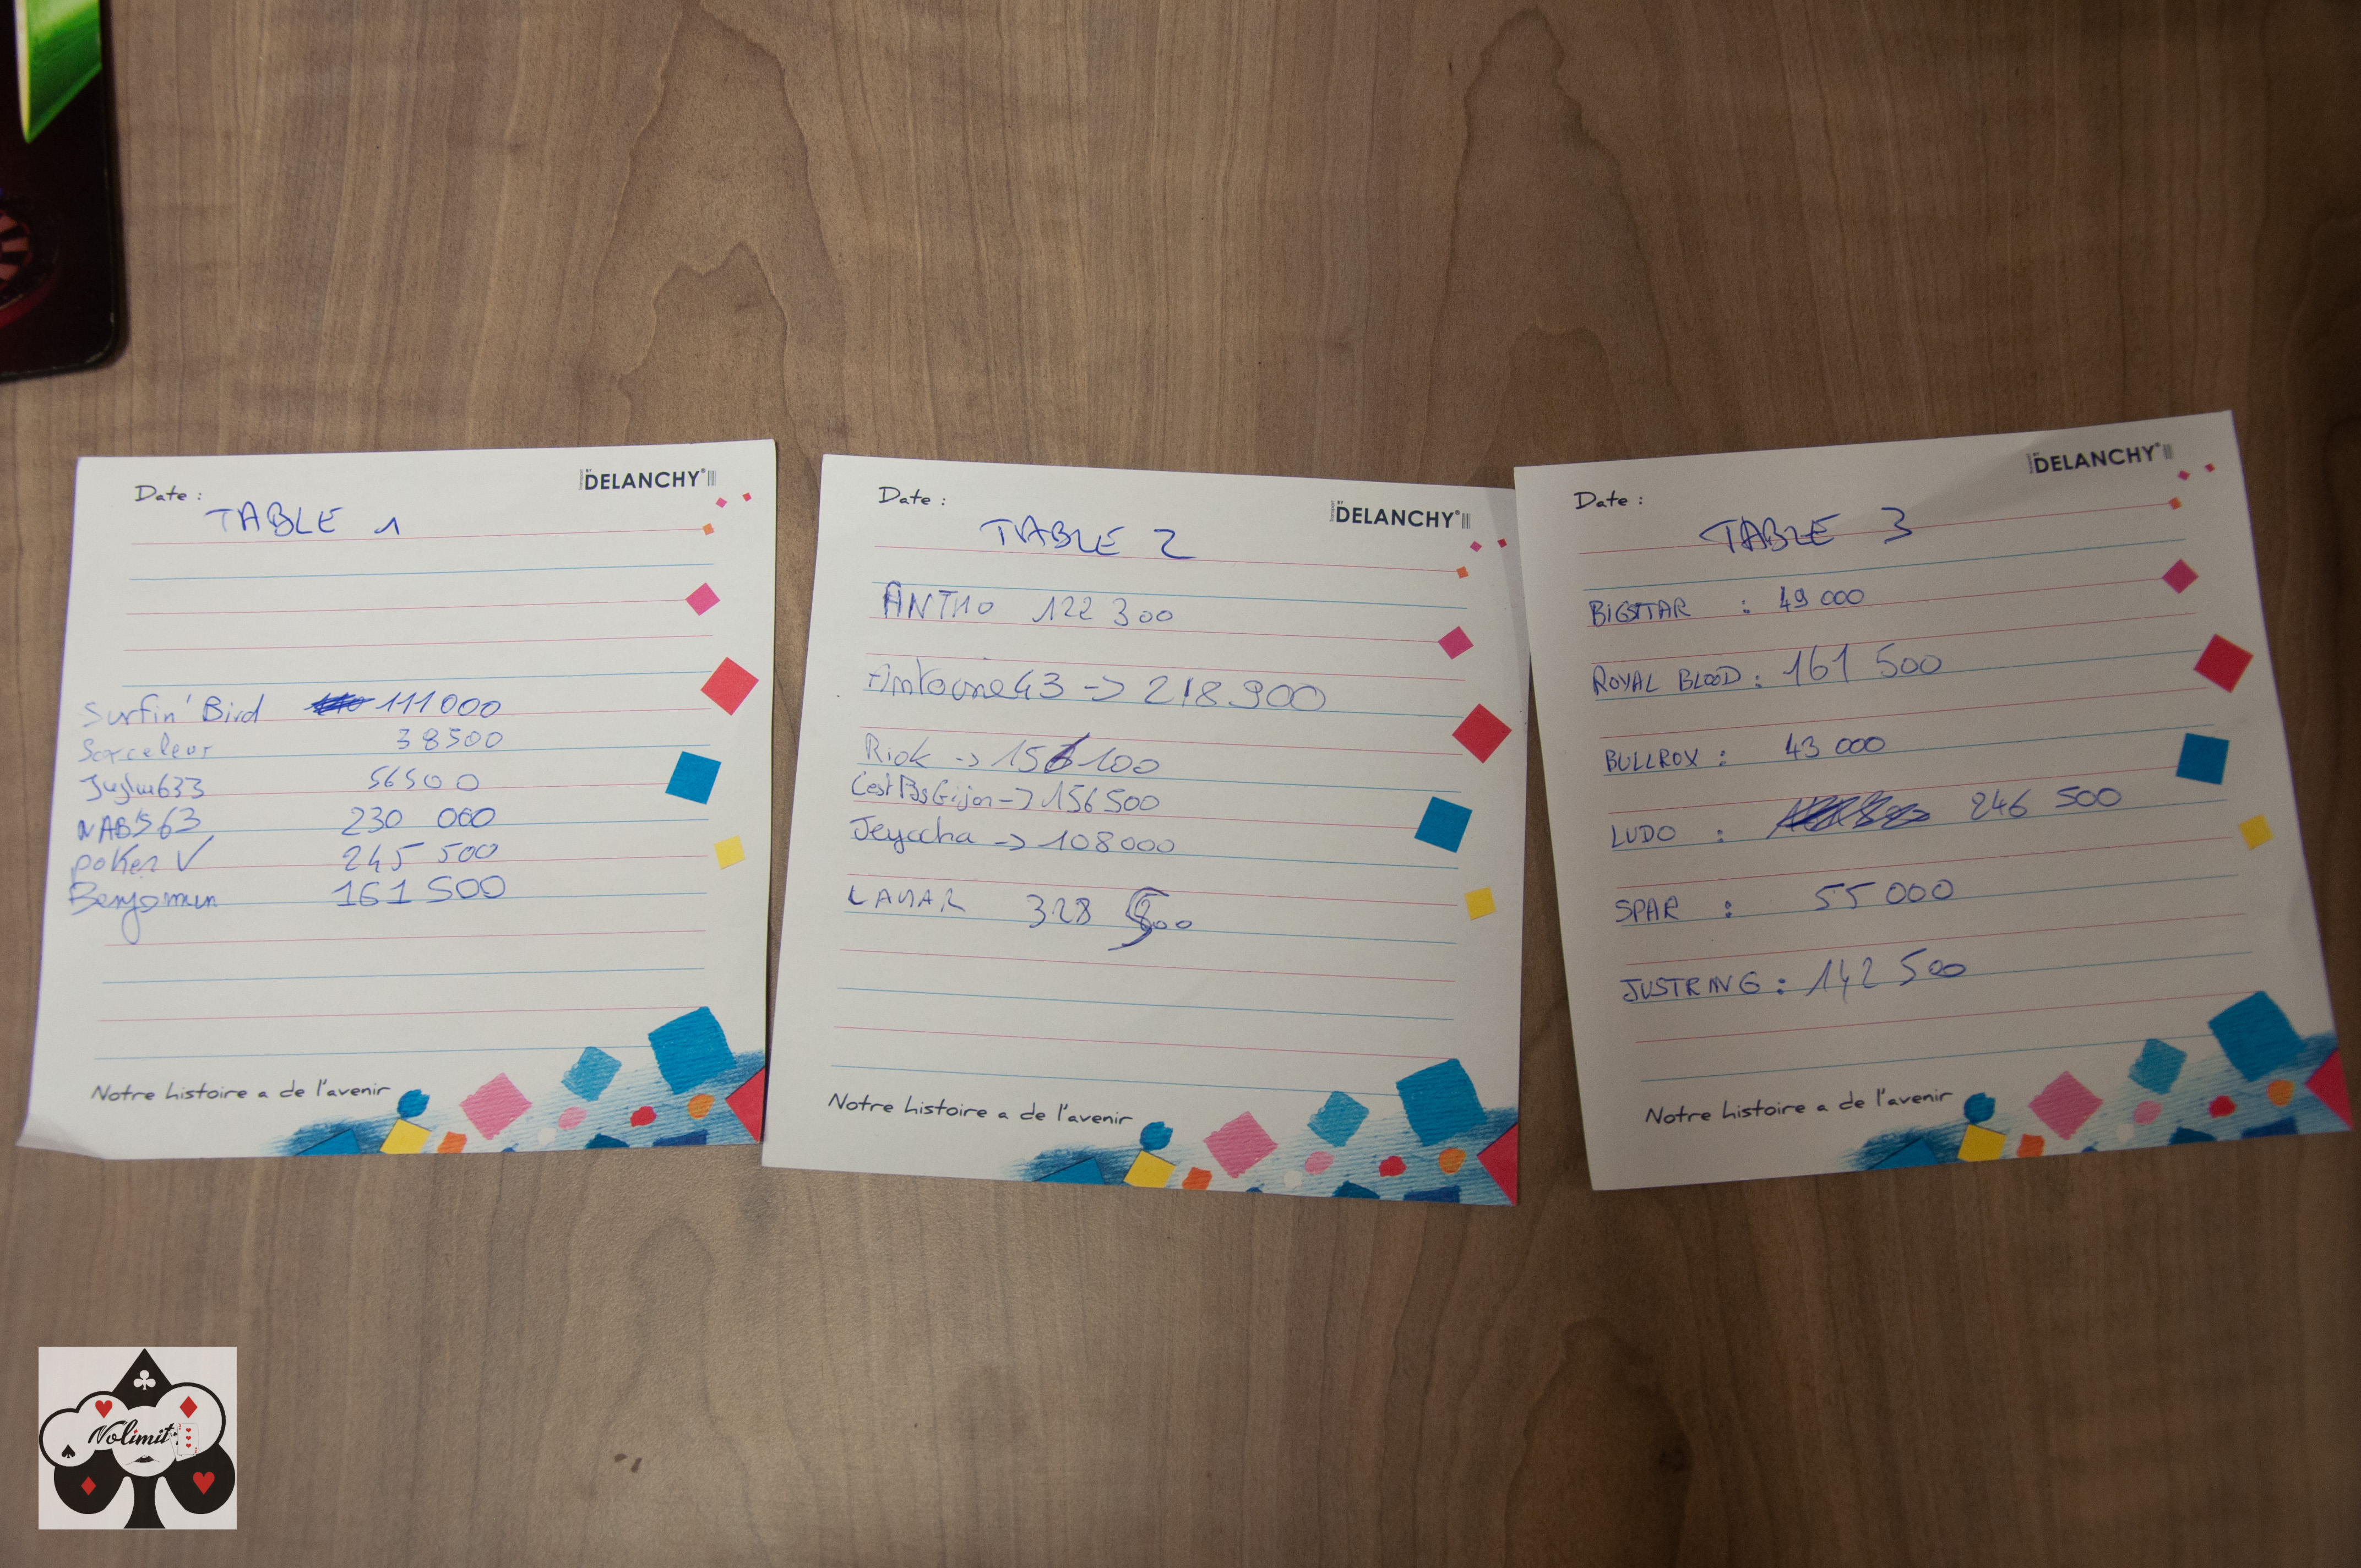 Date :
DELANCHY
TABLE 1
Surfin' Bird 111000
Sorceleur 38500
56500
NAB'S63 230 000
poker V 245 500
Benjamin 161 500
Notre histoire a de l'avenir
Date :
DELANCHY
TABLE 2
ANTHO 122 300
Antoine43 -> 218900
Riok -> 100
CestPasGijon -> 156 500
Jeyccha -> 108000
LAMAR 328
Notre histoire a de l'avenir
Date :
DELANCHY
TABLE 3
BIGSTAR : 49 000
ROYAL BLOOD : 161 500
BULLROX : 43 000
LUDO : 246 500
SPAR : 55 000
JUSTRING : 142 500
Notre histoire a de l'avenir
Nolimit